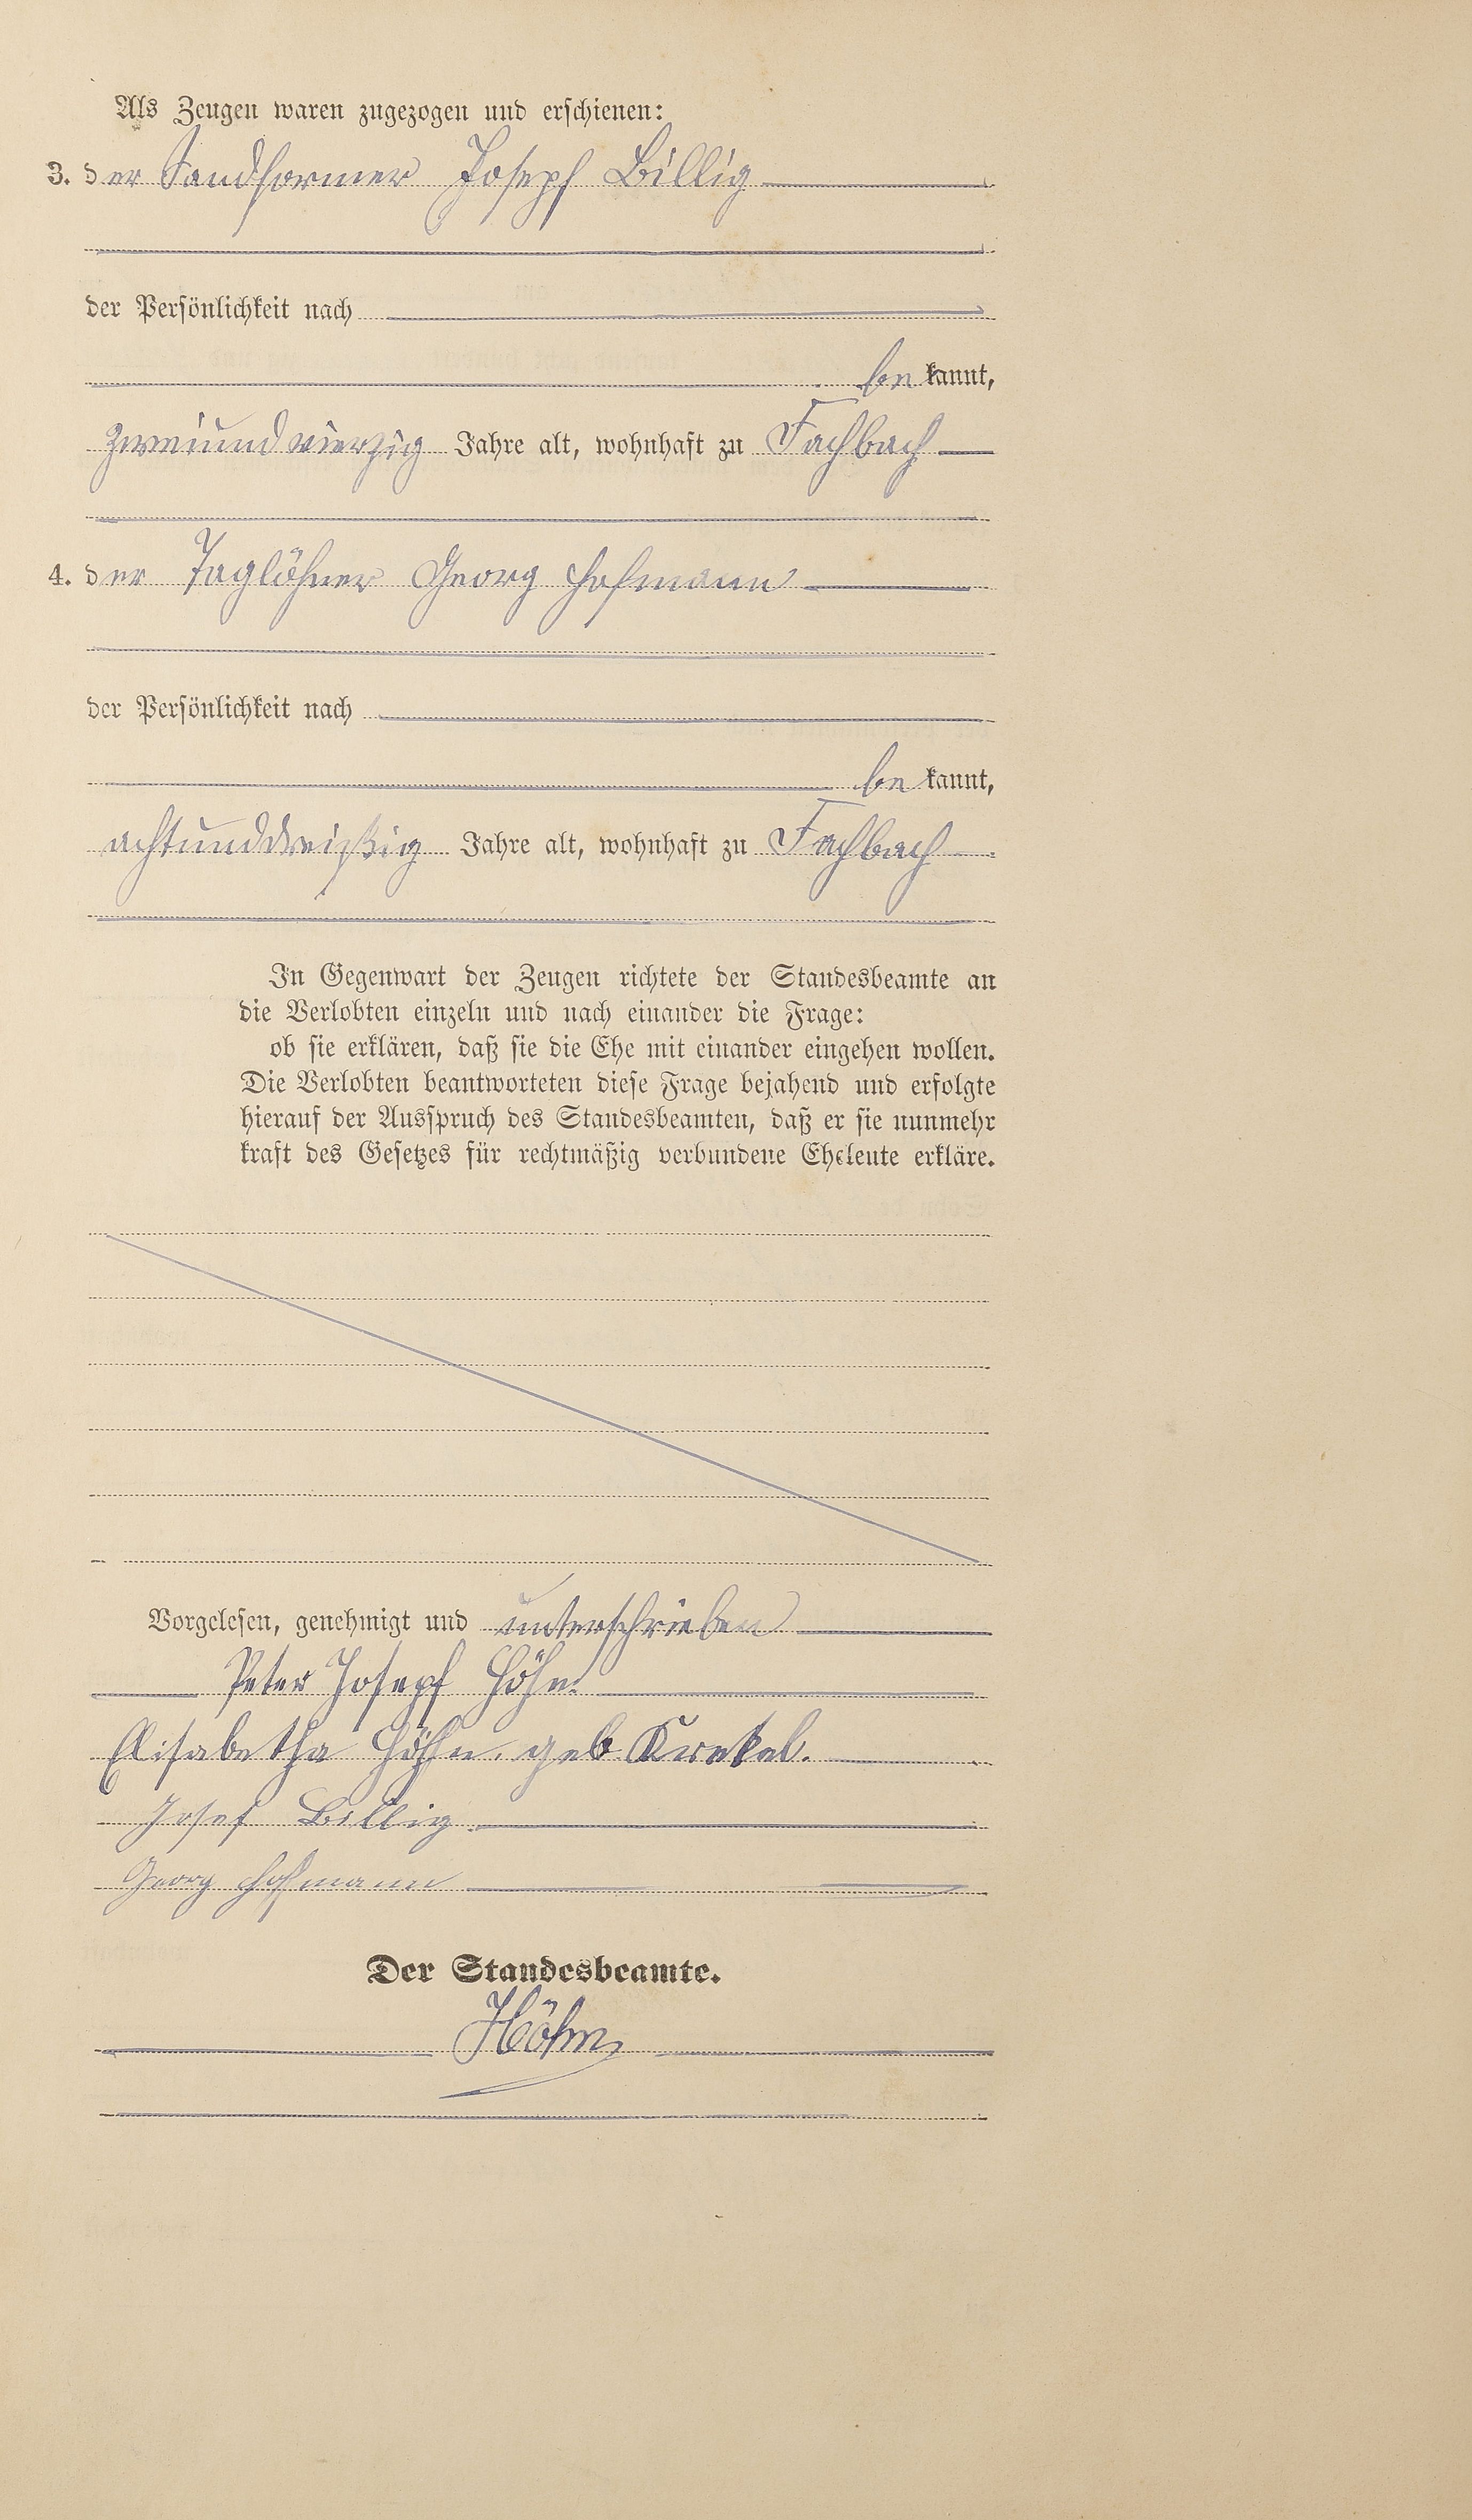 Als Zeugen waren zugezogen und erschienen:
3. der Sandformer Joseph Billig
der Persönlichkeit nach
bekannt,
zweiundvierzig Jahre alt, wohnhaft zu Fachbach
4. der Taglöhner Georg Hofmann
der Persönlichkeit nach
bekannt,
achtunddreißig Jahre alt, wohnhaft zu Fachbach
In Gegenwart der Zeugen richtete der Standesbeamte an
die Verlobten einzeln und nach einander die Frage:
ob sie erklären, daß sie die Ehe mit einander eingehen wollen.
Die Verlobten beantworteten diese Frage bejahend und erfolgte
hierauf der Ausspruch des Standesbeamten, daß er sie nunmehr
kraft des Gesetzes für rechtmäßig verbundene Eheleute erkläre.
Vorgelesen, genehmigt und unterschrieben
Peter Joseph Höhn.
Elisabetha Höhn. geb. Krekel.
Josef Billig
Georg Hofmann
Der Standesbeamte.
Höhn